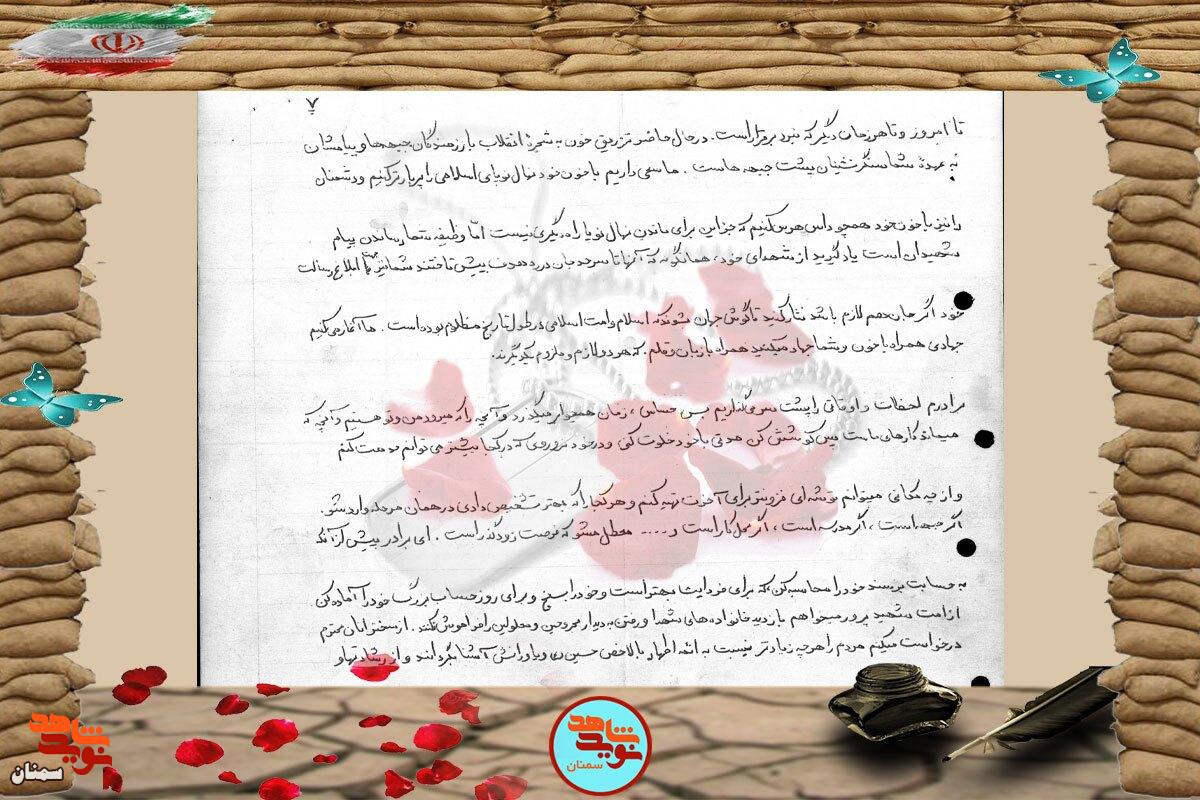 ۷
تا امروز و تا هر زمان دیگر که نبرد برقرار است. در حال حاضر تزریق خون به شجرهٔ انقلاب با رزمندگان جبهه‌ها و پیامشان
به عهدهٔ شما سنگرنشینان پشت جبهه هاست . ما سعی داریم با خون خود نهال نوپای اسلامی را پربارتر کنیم و دشمنان
را نیز با خون خود همچو داس هرس کنیم که جز این برای ماندن نهال نوپا راه دیگری نیست اما وظیفه شما رساندن پیام
شهیدان است یاد گیرید از شهدای خود، همانگونه که آنها تا سرحد جان در ره هدف پیش تاختند شما نیز ابلاغ رسالت
خود اگر جان هم لازم باشد نثار کنید تا گوش جهان شنود که اسلام و امت اسلامی در طول تاریخ مظلوم بوده است . ما آغاز می کنیم
جهادی همراه با خون و شما جهاد میکنید همراه با زبان و قلم. که هر دو لازم و ملزوم یکدیگرند.
برادرم لحظات و اوقاتی را پشت سر می گذاریم بس حساس ، زمان همچو ابر میگذرد و آنچه را که میرود من و تو هستیم و آنچه که
میماند کارهای ماست پس کوشش کن مدتی با خود خلوت کنی و در خود فرو روی که در کجا بیشتر می توانم خدمت کنم
و از چه مکانی میتوانم توشه ای فزونتر برای آخرت تهیه کنم و هر کجا که بهتر تشخیص دادی در همان مرحله وارد شو.
اگر جبهه است ، اگر مدرسه است ، اگر محل کار است و .... معطل مشو که فرصت زودگذر است . ای برادر پیش از آنکه
به حسابت برسند خود را محاسبه کن که برای فردایت بهتر است و خود را بسنج و برای روز حساب بزرگ خود را آماده کن
از امت شهید پرور میخواهم بازدید خانواده های شهدا و رفتن به دیدار مجروحین و معلولین را فراموش نکنند . از سخنرانان محترم
درخواست میکنم مردم را هر چه زیادتر نسبت به ائمه اطهار بالاخص حسین (ع) و یاورانش آشنا بگردانند و از رشادتها و
نوید شاهد
سمنان
نوید شاهد
سمنان